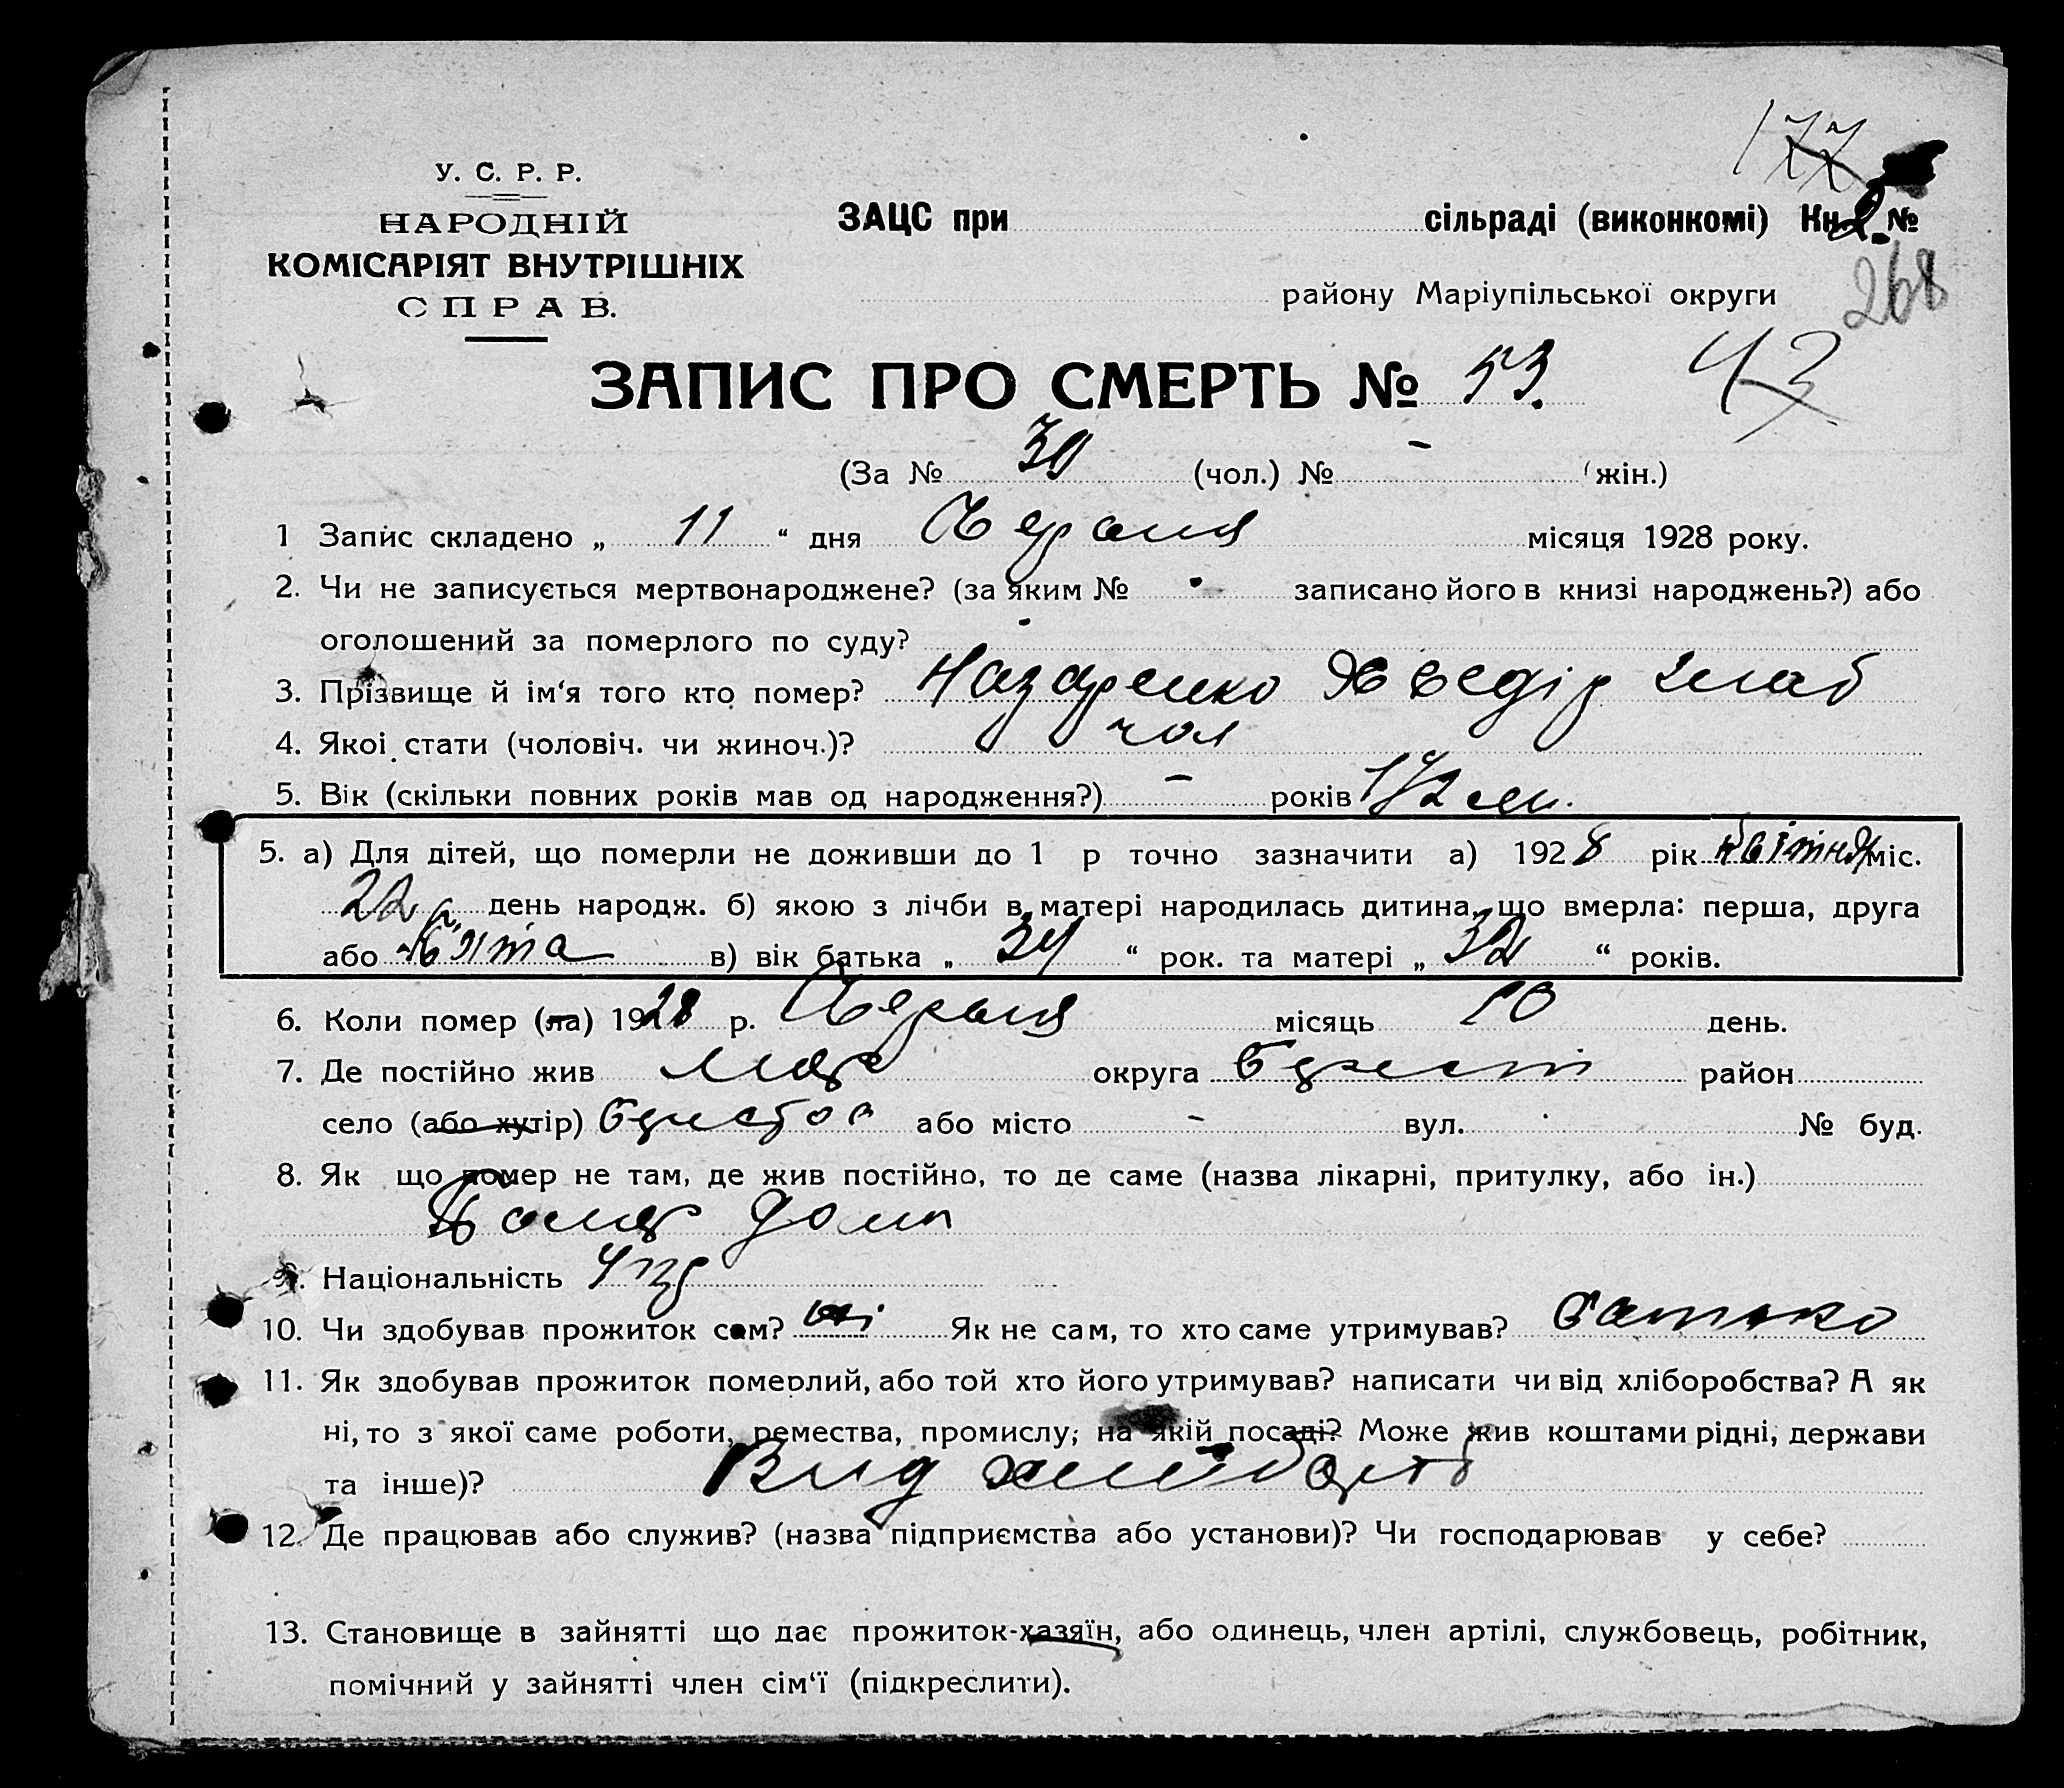 177
У. С. Р. Р.
НАРОДНІЙ
КОМІСАРІЯТ ВНУТРІШНІХ
СПРАВ.
ЗАЦС при сільраді (виконкомі) Кн. 2. №
району Маріупільської округи
268
ЗАПИС ПРО СМЕРТЬ № 53. 43
(За № 30 (чол.) № - (жін.)
1 Запис складено „ 11 “ дня Червня місяця 1928 року.
2. Чи не записується мертвонароджене? (за яким № записано його в книзі народжень?) або
оголошений за померлого по суду? -
3. Прізвище й ім‘я того кто помер? Назаренко Хведір
4. Якоі стати (чоловіч. чи жиноч.)? чол
5. Вік (скільки повних років мав од народження?) - років 1 1/2 м.
5. а) Для дітей, що померли не доживши до 1 р точно зазначити а) 1928 рік Квітня міс.
22 день народж. б) якою з лічби в матері народилась дитина, що вмерла: перша, друга
або п'ята в) вік батька „ 34 “ рок. та матері „ 32 “ років.
6. Коли помер (ла) 1928 р. Червня місяць 10 день.
7. Де постійно жив Мар округа район
село (або хутір) або місто - вул. № буд.
8. Як що помер не там, де жив постійно, то де саме (назва лікарні, притулку, або ін.)
Помер дома
9. Національність Укр
10. Чи здобував прожиток сам? ні Як не сам, то хто саме утримував? батько
11. Як здобував прожиток померлий, або той хто його утримував? написати чи від хліборобства? А як
ні, то з якої саме роботи, ремества, промислу; на якій посаді? Може жив коштами рідні, держави
та інше)? Вид
12. Де працював або служив? (назва підприємства або установи)? Чи господарював у себе?
13. Становище в зайнятті що дає прожиток-хазяїн, або одинець, член артілі, службовець, робітник,
помічний у зайнятті член сім‘ї (підкреслити).